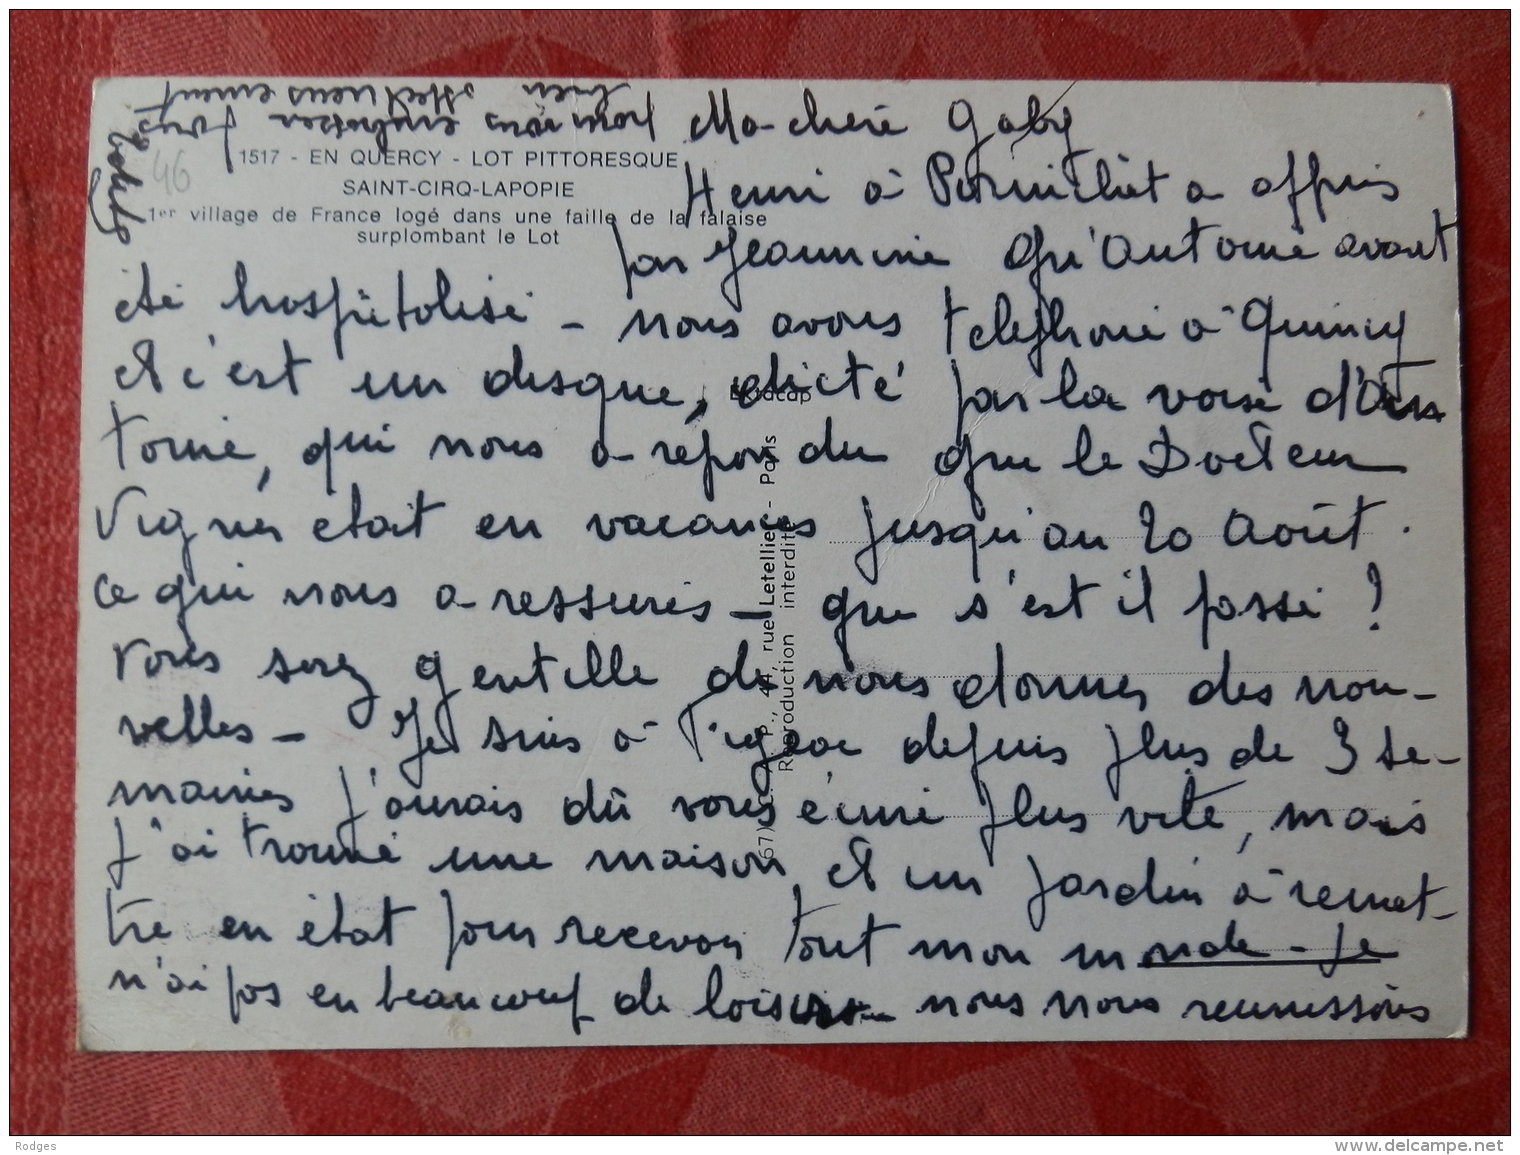 Ma chère Gaby
Henri à Pornichet a appris
par Jeannine qu'Antoine avait
été hospitalisé - nous avons téléphoné à Quincy
et c'est un disque, dicté par la voix d'An
toine, qui nous a répondu que le Docteur
Vignes était en vacances jusqu'au 20 Août.
ce qui nous a ressurés - que s'est il passé ?
vous serez gentille de nous donner des nou-
velles - Je suis à Figeac depuis plus de 3 se-
maines j'aurais dû vous écrire plus vite, mais
j'ai trouvé une maison, et un jardin à remet-
tre en état pour recevoir tout mon monde - Je
n'ai pas eu beaucoup de loisirs - nous nous reunissons
pour vous embrasser tous
bien affectueusement
46
1517 - EN QUERCY - LOT PITTORESQUE
SAINT-CIRQ-LAPOPIE
1er village de France logé dans une faille de la falaise
surplombant le Lot
44, rue Letellier - Paris
Reproduction interdite
Rodges
www.delcampe.net